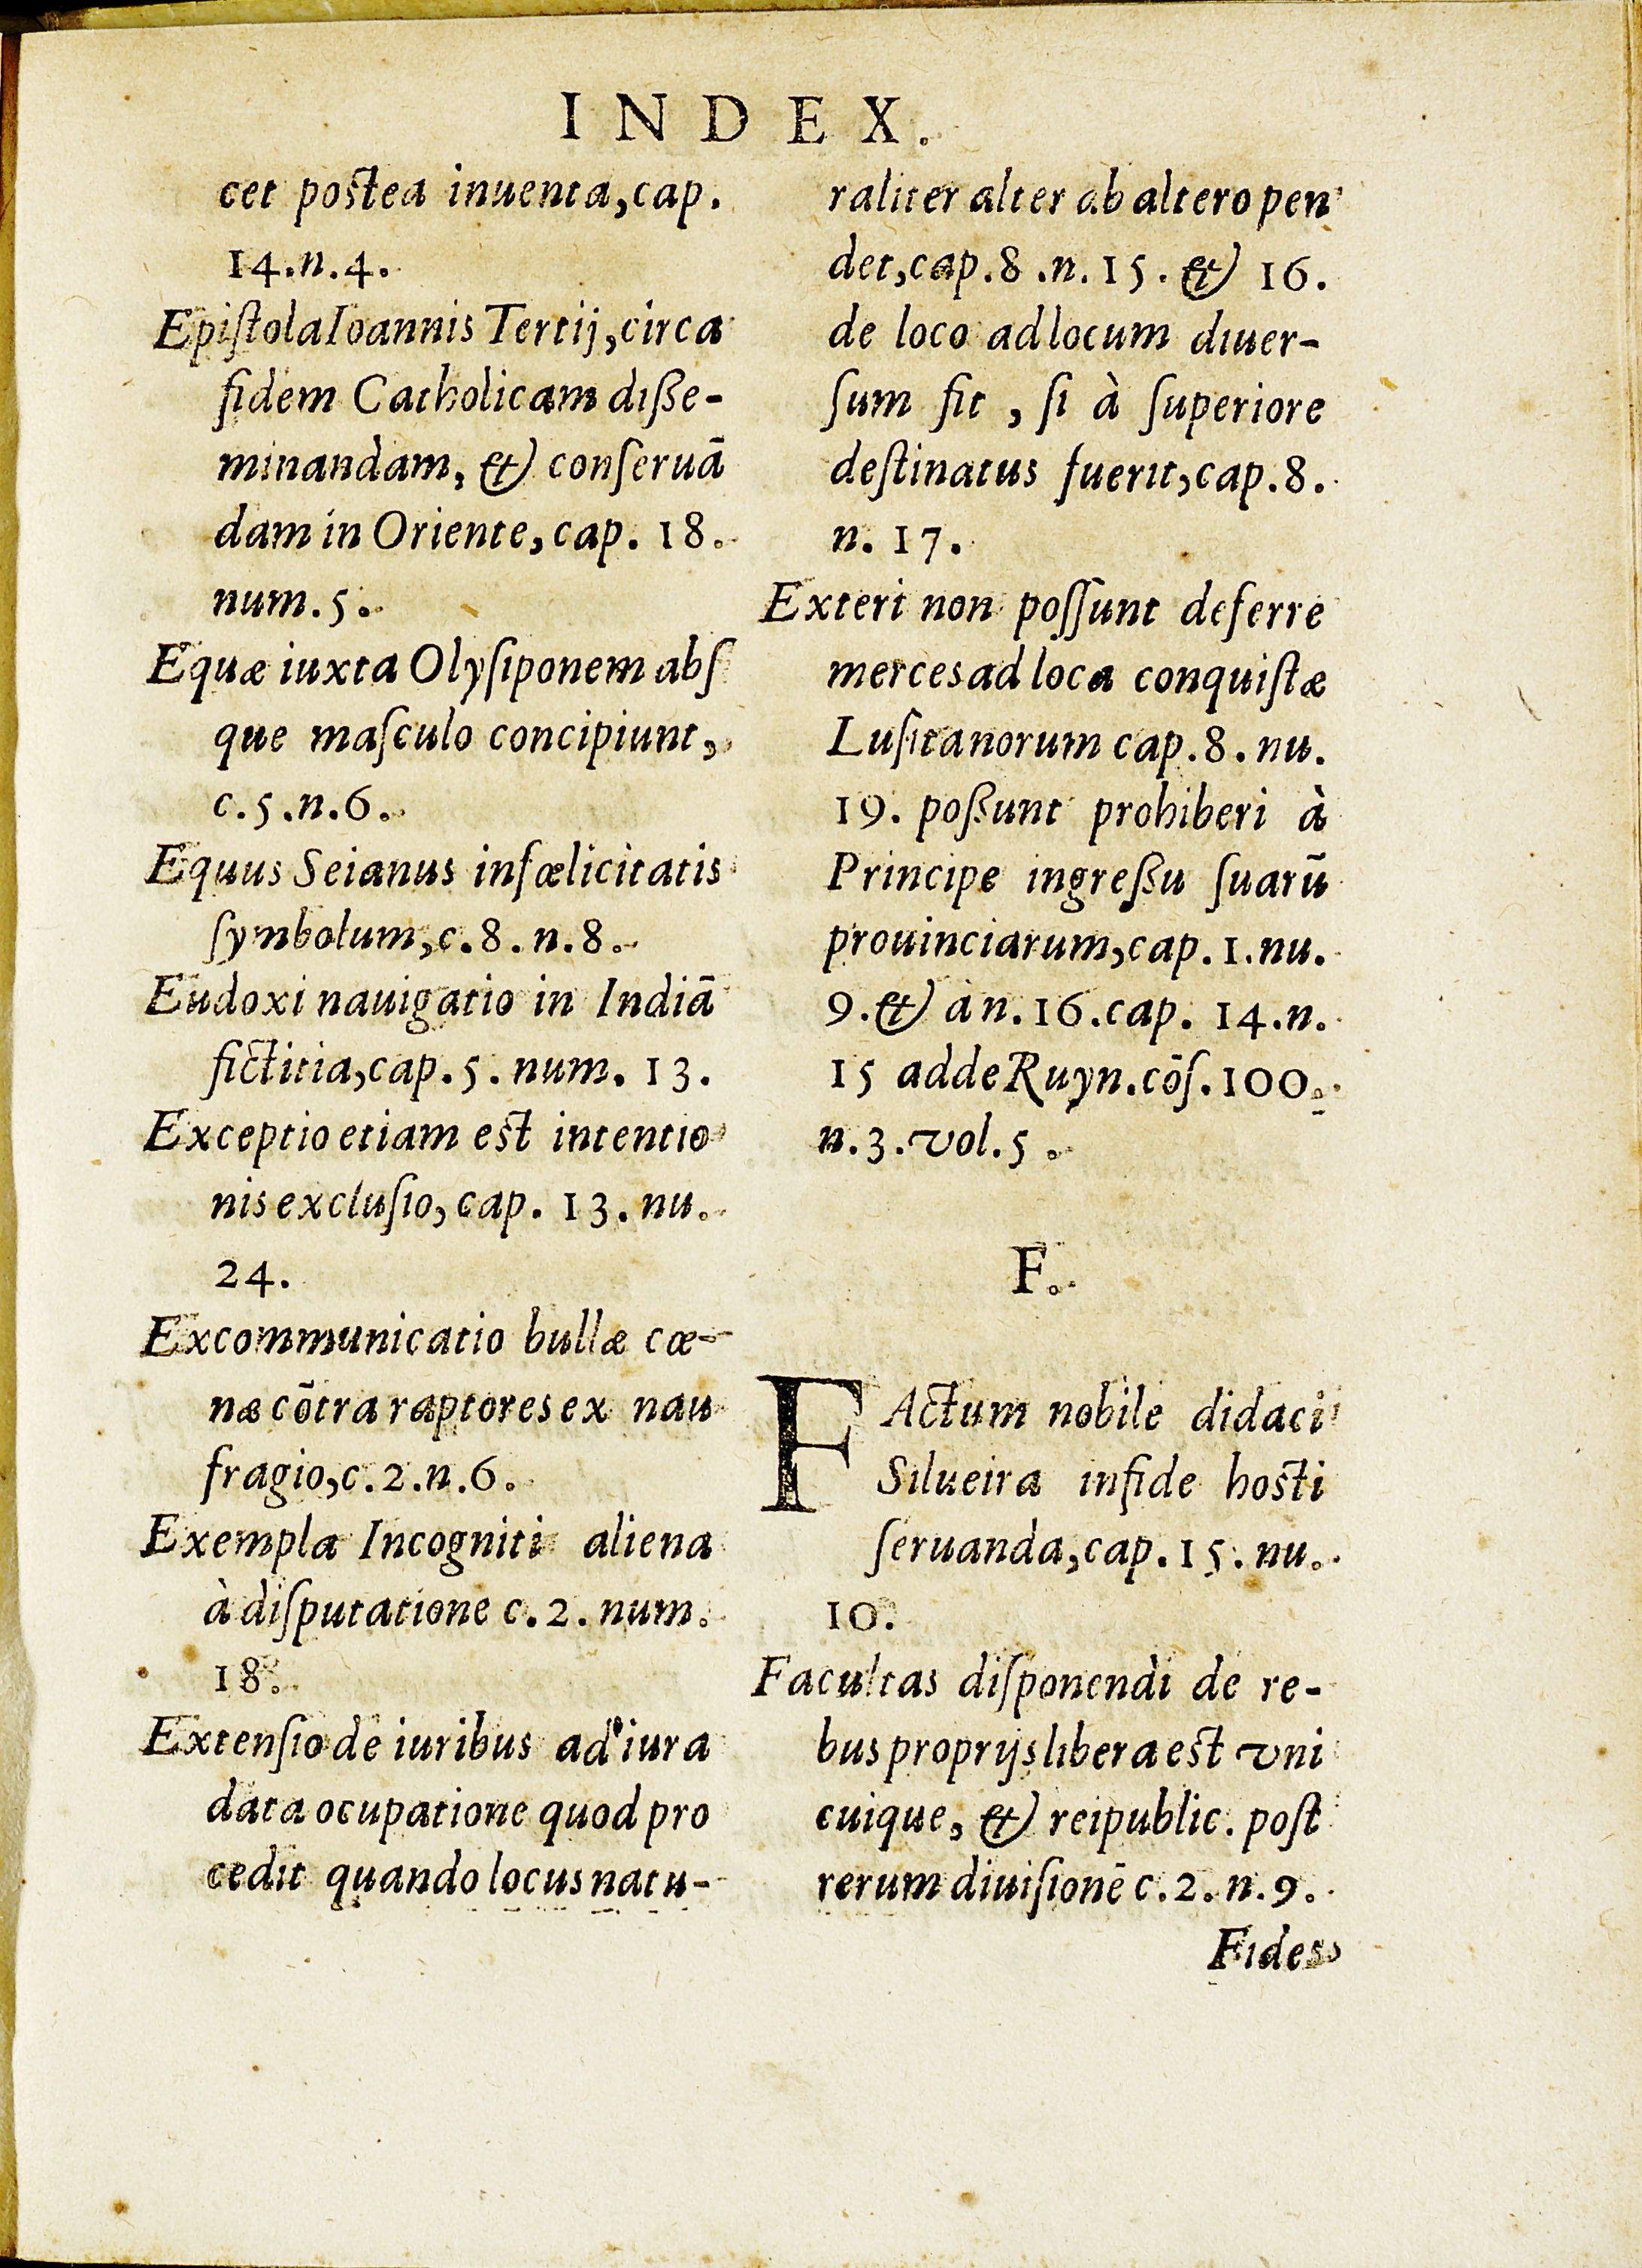 INDEX.
cet postea inuenta, cap.
14.n.4.
Epiſtola Ioannis Tertij, circa
fidem Catholicam diße-
minandam, & conſeruā
dam in Oriente, cap. 18.
num.5.
Equæ iuxta Olyſiponem abſ
que maſculo concipiunt,
c.5.n.6.
Equus Seianus infœlicitatis
ſymbolum, c.8.n.8.
Eudoxi nauigatio in Indiā
fictitia, cap.5. num. 13.
Exceptio etiam est intentio
nis excluſio, cap. 13. nu.
24.
Excommunicatio bullæ cœ-
næ cōtra raptores ex nau
fragio, c.2.n.6.
Exempla Incogniti aliena
à diſputatione c.2. num.
18.
Extenſio de iuribus ad iura
data ocupatione quod pro
cedit quando locus natu-
raliter alter ab altero pen
det, cap.8.n.15. & 16.
de loco ad locum diuer-
ſum fit, ſi à ſuperiore
deſtinatus fuerit, cap.8.
n. 17.
Exteri non poſſunt deferre
merces ad loca conquiſtæ
Luſitanorum cap.8. nu.
19. poßunt prohiberi à
Principe ingreßu ſuarū
prouinciarum, cap. 1. nu.
9. & à n.16. cap. 14.n.
15 adde Ruyn. cōſ.100.
n.3. vol.5.
F.
FActum nobile didaci
Silueira in fide hosti
ſeruanda, cap.15. nu.
10.
Facultas diſponendi de re-
bus proprijs libera est vni
cuique, & reipublic. poſt
rerum diuiſionē c.2. n.9.
Fides